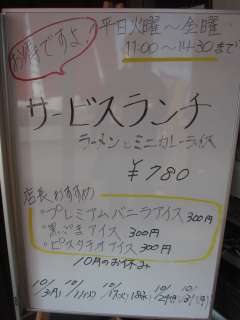 お得ですよ!
平日火曜〜金曜
11:00〜14:30まで
サービスランチ
ラーメンとミニカレーライス
¥780
店長おすすめ
プレミアムバニラアイス 300円
黒ごまアイス 300円
ピスタチオアイス 300円
10月のお休み